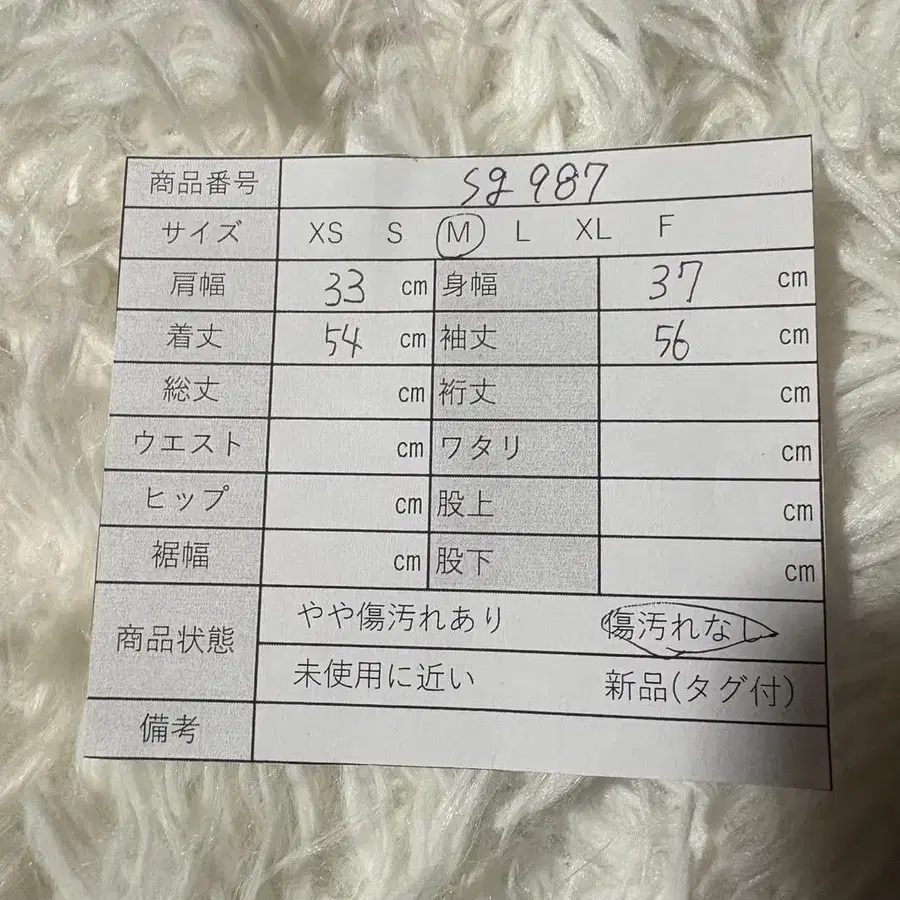 商品番号 sg987
サイズ XS S M L XL F
肩幅 33 cm 身幅 37 cm
着丈 54 cm 袖丈 56 cm
総丈 cm 裄丈 cm
ウエスト cm ワタリ cm
ヒップ cm 股上 cm
裾幅 cm 股下 cm
商品状態 やや傷汚れあり 傷汚れなし
未使用に近い 新品(タグ付)
備考